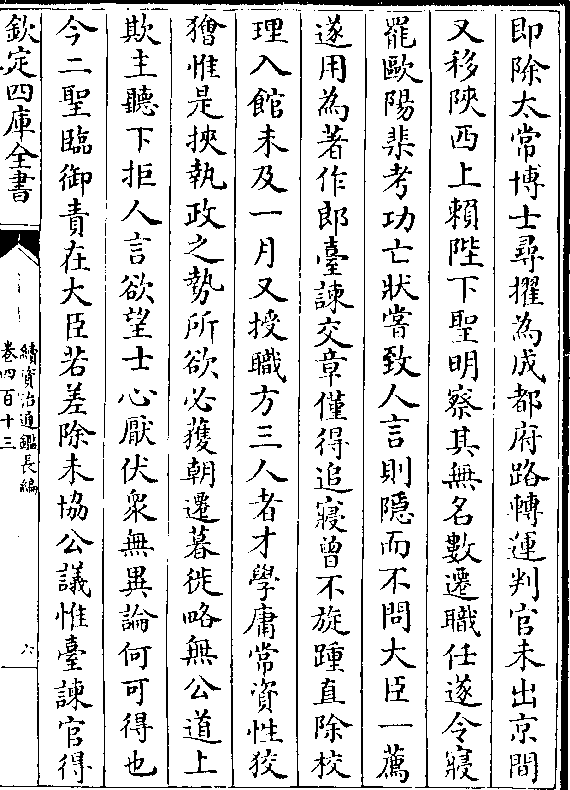 即除太常博士尋擢為成都府路轉運判官未出京間
又移陝西上賴陛下聖明察其無名數遷職任遂令寢
罷歐陽棐考功亡狀嘗致人言則隱而不問大臣一薦
遂用為著作郎臺諫交章僅得追寢曾不旋踵直除校
理入館未及一月又授職方三人者才學庸常資性狡
獪惟是挾執政之勢所欲必獲朝遷暮徙略無公道上
欺主聽下拒人言欲望士心厭伏衆無異論何可得也
今二聖臨御責在大臣若差除未協公議惟臺諫官得
欽定四庫全書
續資治通鑑長編
卷四百十三
六